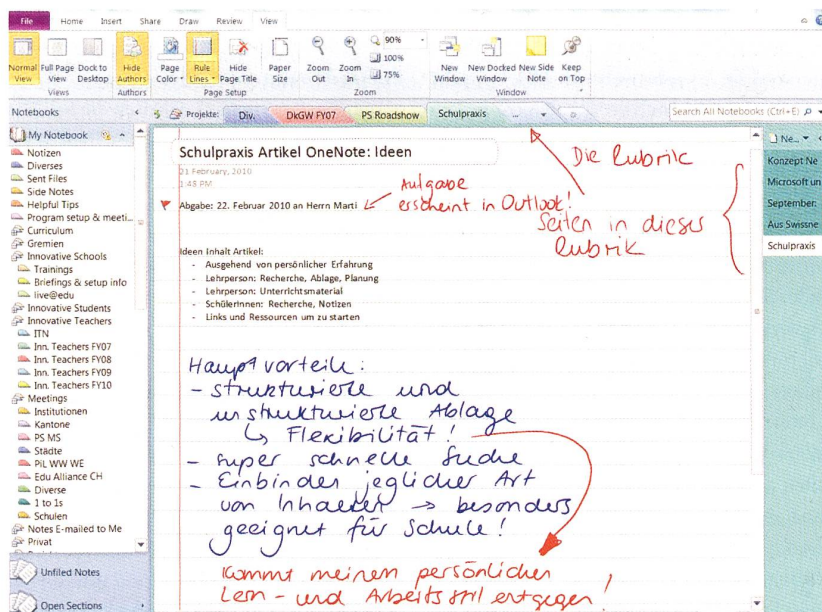 File Home Insert Share Draw Review View
Normal View
Full Page View
Dock to Desktop
Views
Hide Authors
Authors
Page Color
Rule Lines
Hide Page Title
Page Setup
Paper Size
Zoom Out
Zoom In
90%
100%
75%
Zoom
New Window
New Docked Window
New Side Note
Keep on Top
Window
Notebooks
Projekte: Div. DkGW FY07 PS Roadshow Schulpraxis ...
Search All Notebooks (Ctrl+E)
My Notebook
Notizen
Diverses
Sent Files
Side Notes
Helpful Tips
Program setup & meeti...
Curriculum
Gremien
Innovative Schools
Trainings
Briefings & setup info
live@edu
Innovative Students
Innovative Teachers
ITN
Inn. Teachers FY07
Inn. Teachers FY08
Inn. Teachers FY09
Inn. Teachers FY10
Meetings
Institutionen
Kantone
PS MS
Städte
PiL WW WE
Edu Alliance CH
Diverse
1 to 1s
Schulen
Notes E-mailed to Me
Privat
Unfiled Notes
Open Sections
Schulpraxis Artikel OneNote: Ideen
21 February, 2010
1:45 PM
Abgabe: 22. Februar 2010 an Herrn Marti
Aufgabe
erscheint in Outlook!
Die Rubrik
Seiten in dieser
Rubrik
Ideen Inhalt Artikel:
- Ausgehend von persönlicher Erfahrung
- Lehrperson: Recherche, Ablage, Planung
- Lehrperson: Unterrichtsmaterial
- SchülerInnen: Recherche, Notizen
- Links und Ressourcen um zu starten
Hauptvorteile:
- strukturierte und
unstrukturierte Ablage
↳ Flexibilität!
- super schnelle Suche
- Einbinden jeglicher Art
von Inhalten → besonders
geeignet für Schule!
Kommt meinem persönlichen
Lern- und Arbeitsstil entgegen!
Ne...
Konzept Ne
Microsoft un
September:
Aus Swissne
Schulpraxis